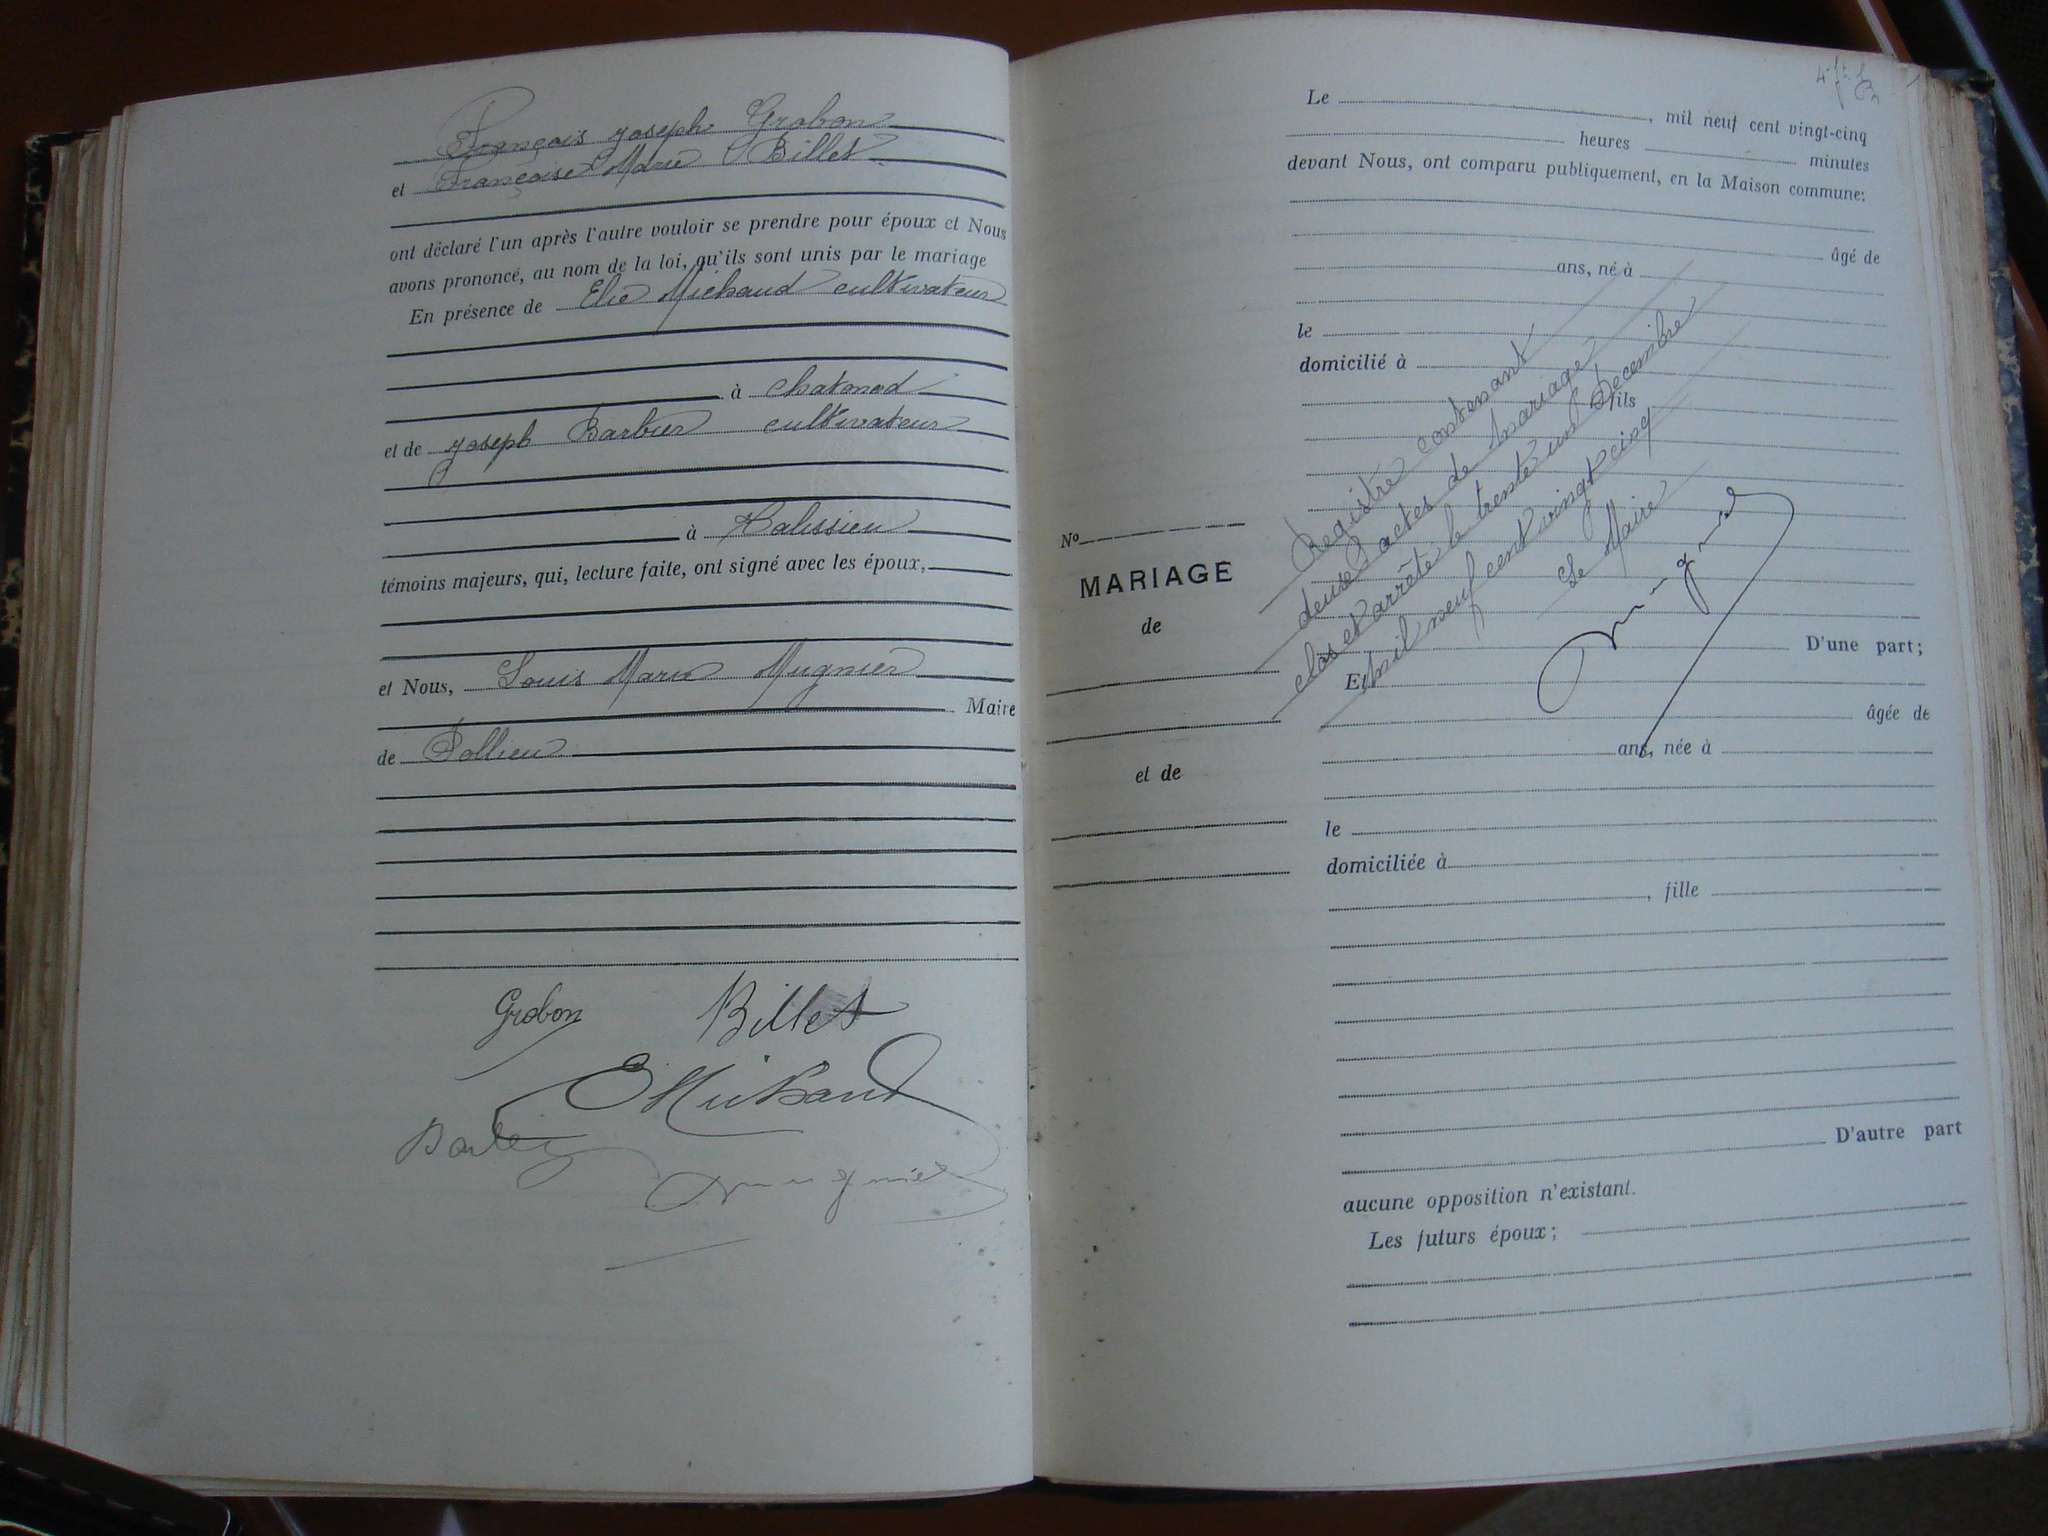 François Joseph Grobon
et Françoise Marie Billet
ont déclaré l'un après l'autre vouloir se prendre pour époux et Nous
avons prononcé, au nom de la loi, qu'ils sont unis par le mariage
En présence de Elie Michaud cultivateur
à chatonod
et de Joseph Barbier cultivateur
à
témoins majeurs, qui, lecture faite, ont signé avec les époux,
et Nous, Louis Marie Mugnier
Maire
de Pollieu
Grobon Billet
E Michaud
Barbier
Mugnier
Le , mil neuf cent vingt-cinq
heures minutes
devant Nous, ont comparu publiquement, en la Maison commune:
âgé de
ans, né à
le
domicilié à
fils
No
MARIAGE
de
et de
Registre contenant
deux actes de Mariage
clos et arrêté le trente un Décembre
Mil neuf cent vingt cinq
Le Maire
Mugnier
D'une part;
Et
âgée de
ans, née à
le
domiciliée à
, fille
D'autre part
aucune opposition n'existant.
Les futurs époux;